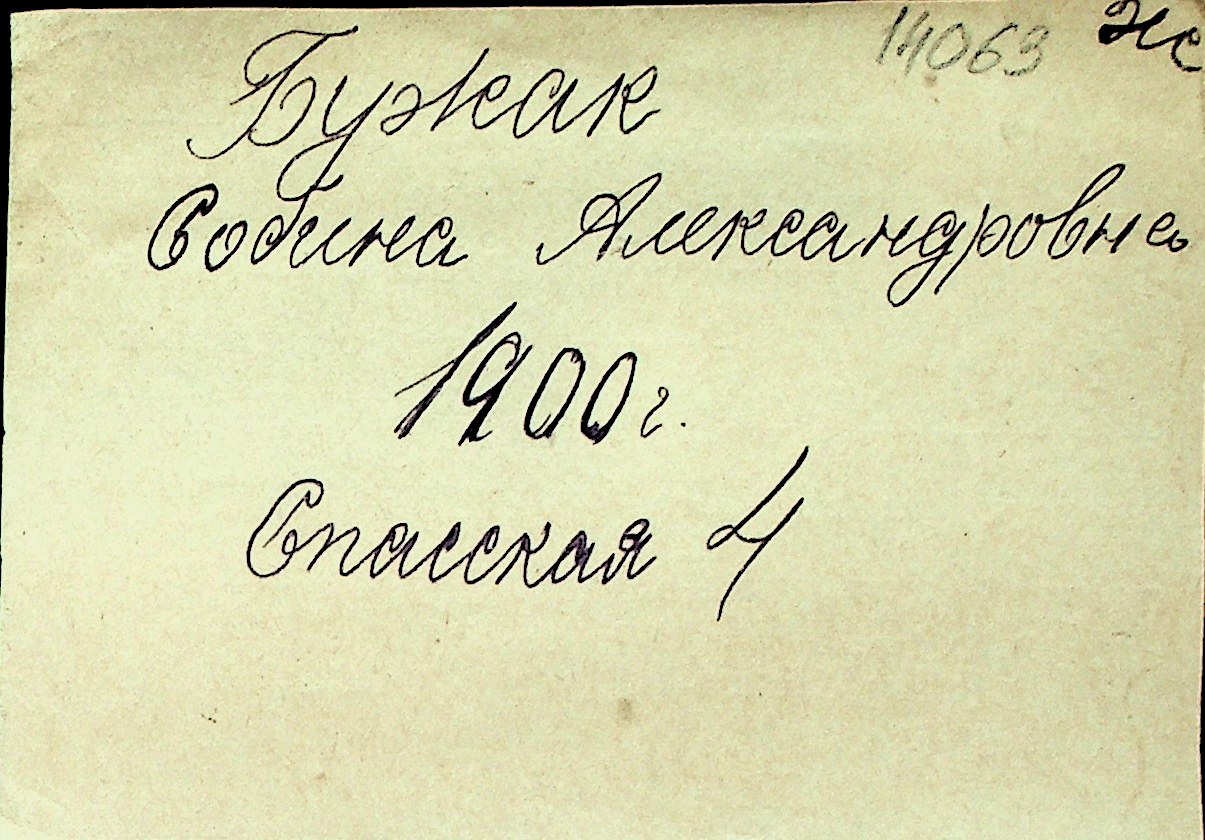 14063 Ж
Бужак
Собина Александровна
1900 г.
Спасская 4